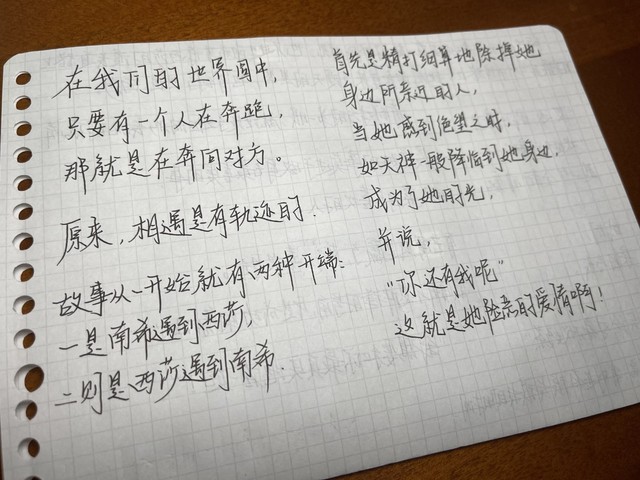 在我们的世界图中，
只要有一个人在奔跑，
那就是在奔向对方。
原来，相遇是有轨迹的．
故事从一开始就有两种开端：
一是南希遇到西莎，
二则是西莎遇到南希．
首先是精打细算地除掉她
身边所亲近的人，
当她感到绝望之时，
如天神一般降临到她身边．
成为了她的光，
并说，
“你还有我呢”
这就是她险恶的爱情啊！